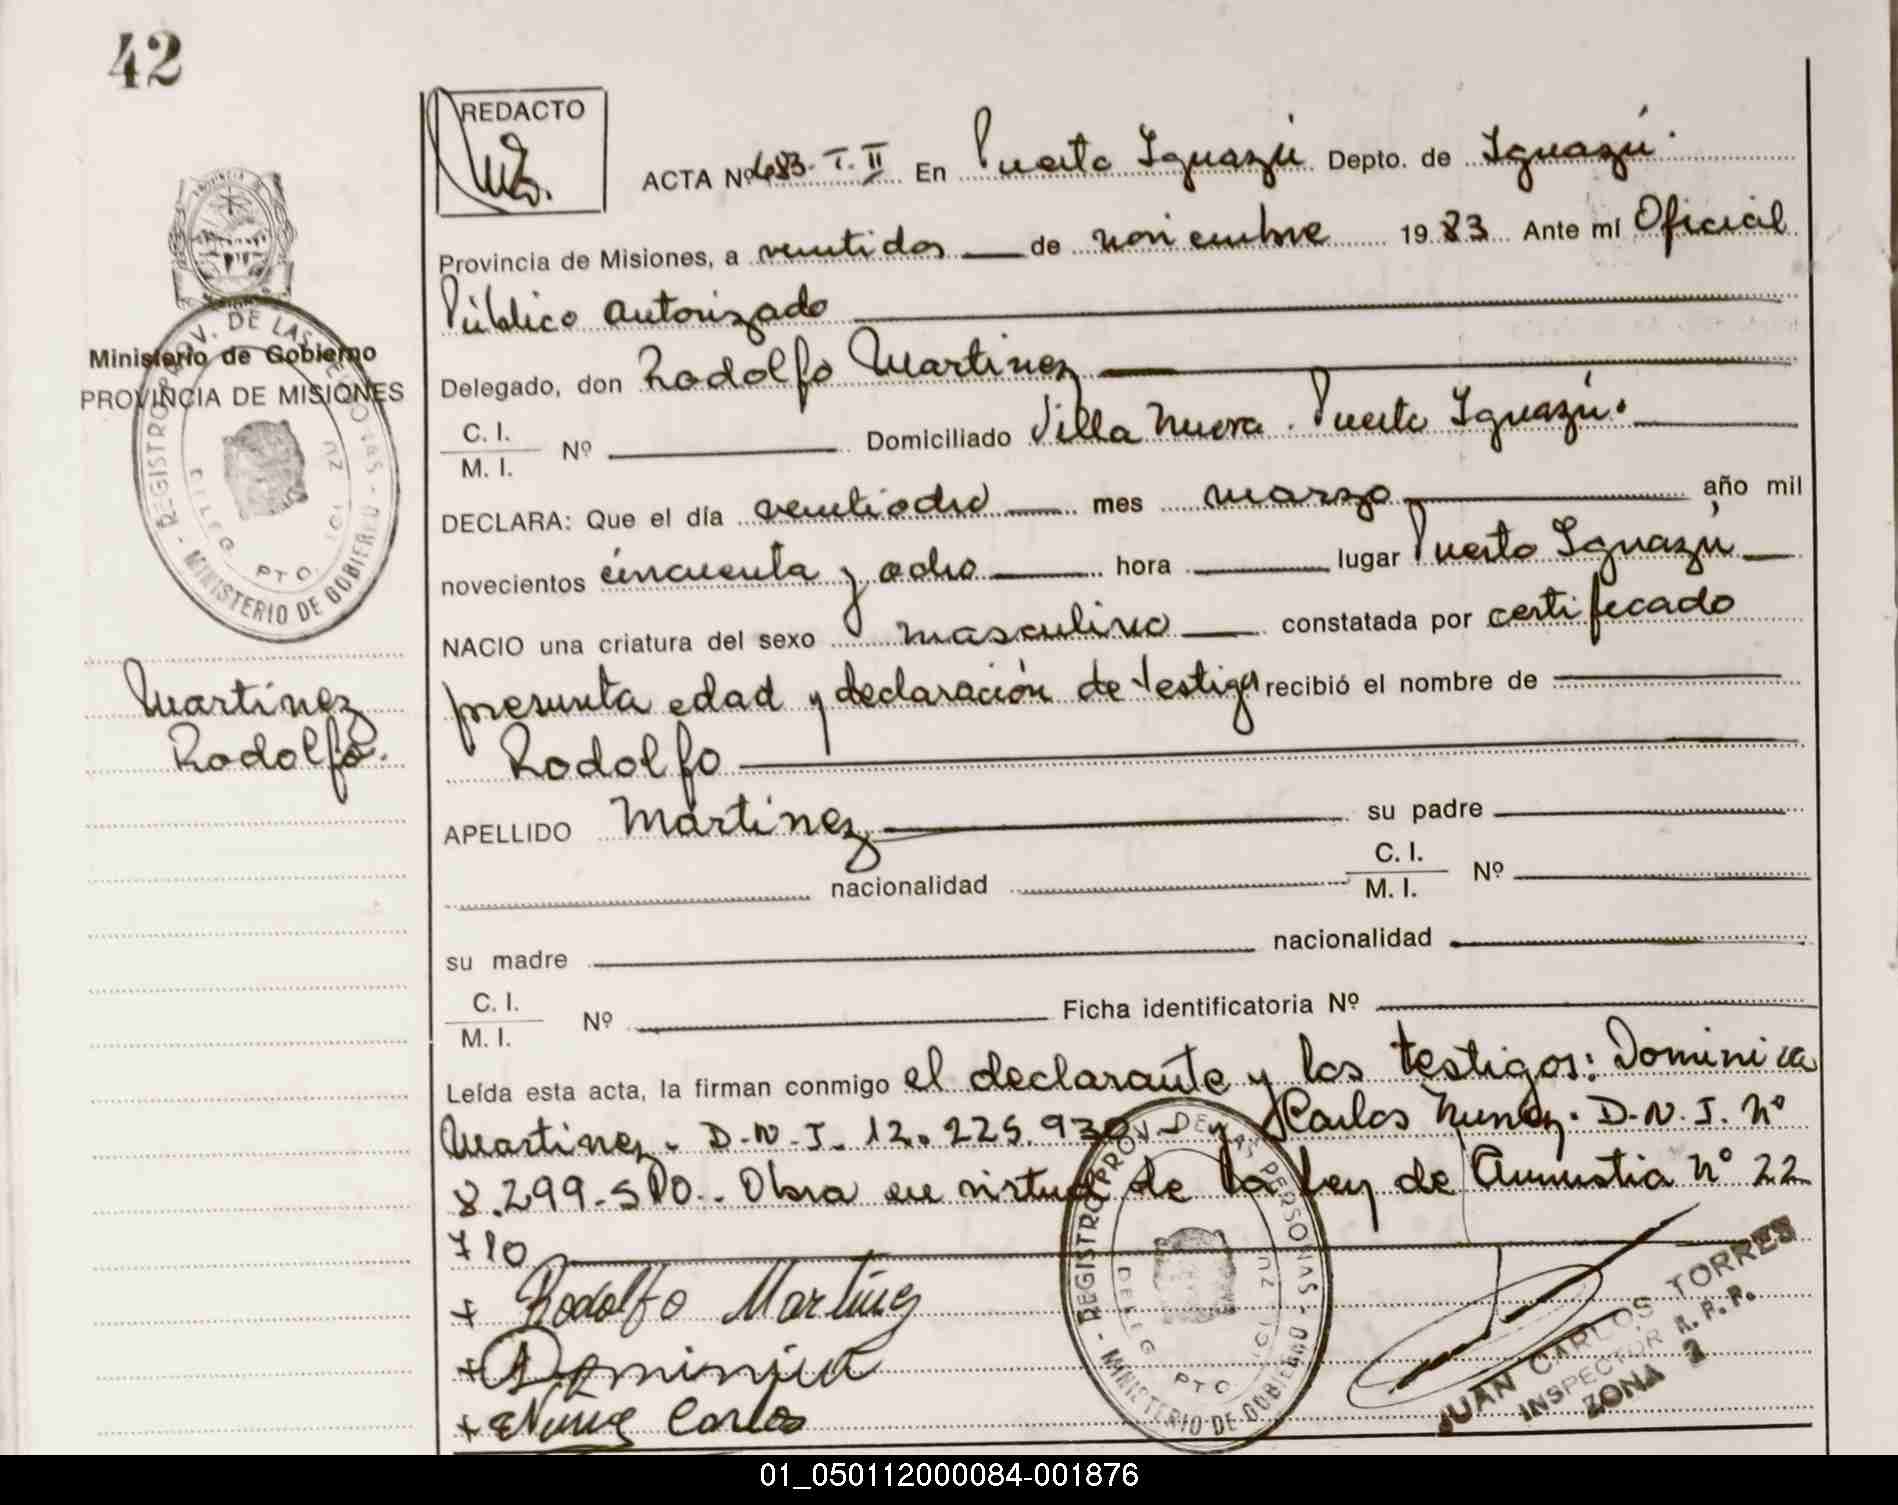 42
REDACTO
ACTA Nº 483. T. II En Puerto Iguazú Depto. de Iguazú.
Provincia de Misiones, a veintidos de noviembre 1983 Ante mí Oficial
Público autorizado
Delegado, don Rodolfo Martinez
C. I.
M. I.
Nº
Domiciliado Villa Nueva. Puerto Iguazú.
DECLARA: Que el día veintiocho mes marzo año mil
novecientos cincuenta y ocho hora lugar Puerto Iguazú
NACIO una criatura del sexo masculino constatada por certificado
presunta edad y declaración de testigos recibió el nombre de
Rodolfo
APELLIDO Martinez su padre
nacionalidad C. I.
M. I.
Nº
su madre nacionalidad
C. I.
M. I.
Nº
Ficha identificatoria Nº
Leída esta acta, la firman conmigo el declarante y los testigos: Dominica
Martinez. D.N.I. 12.225.930 y Carlos Nunez. D.N.I. Nº
8.299.510.. Obra en virtud de la ley de Amnistia Nº 22
710
+ Rodolfo Martinez
+ Dominica
+ Nuñez Carlos
Ministerio de Gobierno
PROVINCIA DE MISIONES
REGISTRO PROV. DE LAS PERSONAS - MINISTERIO DE GOBIERNO
DELEG PTO. IGUAZU
Martinez
Rodolfo.
REGISTRO PROV. DE LAS PERSONAS - MINISTERIO DE GOBIERNO
DELEG PTO. IGUAZU
JUAN CARLOS TORRES
INSPECTOR R. P. P.
ZONA 2
01_050112000084-001876